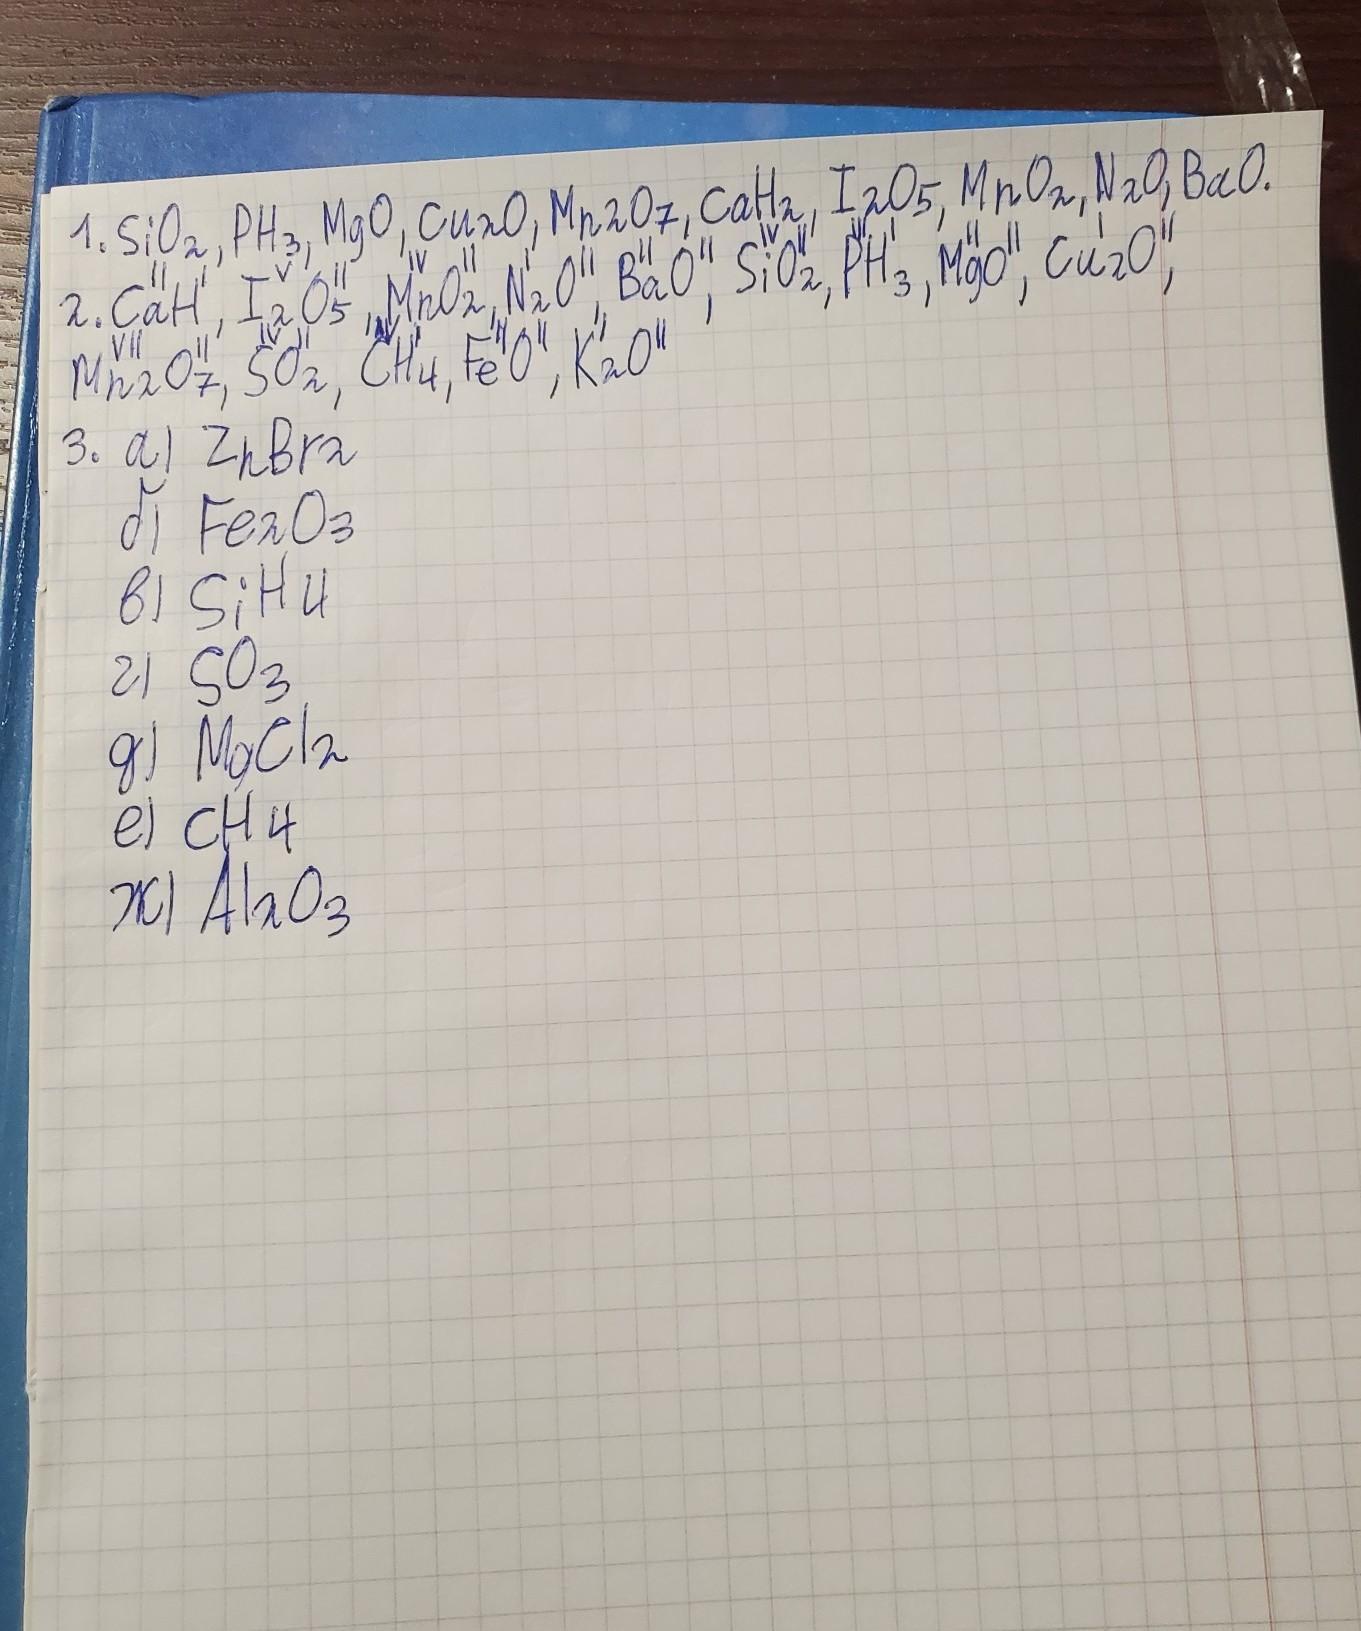 1. SiO2, PH3, MgO, Cu2O, Mn2O7, CaH2, I2O5, MnO2, N2O, BaO.
2. CaᴵᴵHᴵ, I₂ⱽO₅ᴵᴵ, MnᴵⱽO₂ᴵᴵ, N₂ᴵOᴵᴵ, BaᴵᴵOᴵᴵ, SiᴵⱽO₂ᴵᴵ, PᴵᴵᴵH₃ᴵ, MgᴵᴵOᴵᴵ, Cu₂ᴵOᴵᴵ,
Mn₂ⱽᴵᴵO₇ᴵᴵ, SᴵⱽO₂ᴵᴵ, CᴵⱽH₄ᴵ, FeᴵᴵOᴵᴵ, K₂ᴵOᴵᴵ
3. а) ZnBr2
б) Fe2O3
в) SiH4
г) SO3
д) MgCl2
е) CH4
ж) Al2O3